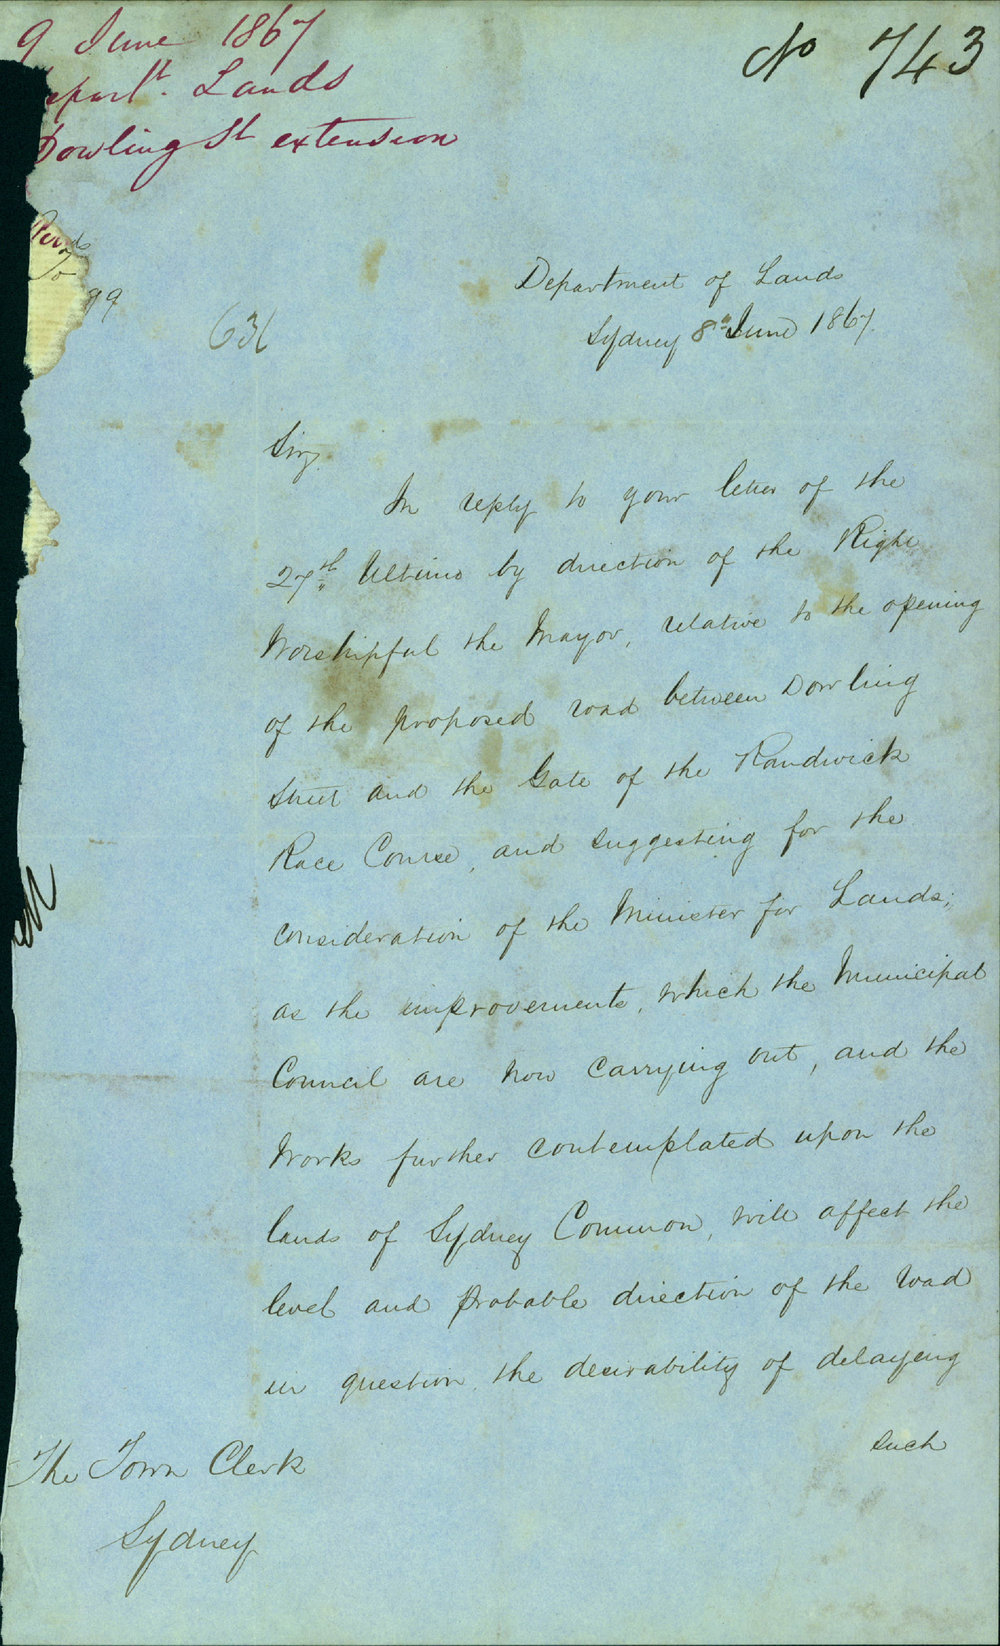 9 June 1867
epart<sup>t</sup>. Lands
Dowling St extension
No 743
99
631
Department of Lands
Sydney 8th June 1867.
Sir,
In reply to your letter of the
27th Ultimo by direction of the Right
Worshipful the Mayor, relative to the opening
of the proposed road between Dowling
Street and the Gate of the Randwick
Race Course, and suggesting for the
consideration of the Minister for Lands;
as the improvements, which the Municipal
Council are now carrying out, and the
Works further contemplated upon the
lands of Sydney Common, will affect the
level and probable direction of the road
in question, the desirability of delaying
such
The Town Clerk
Sydney